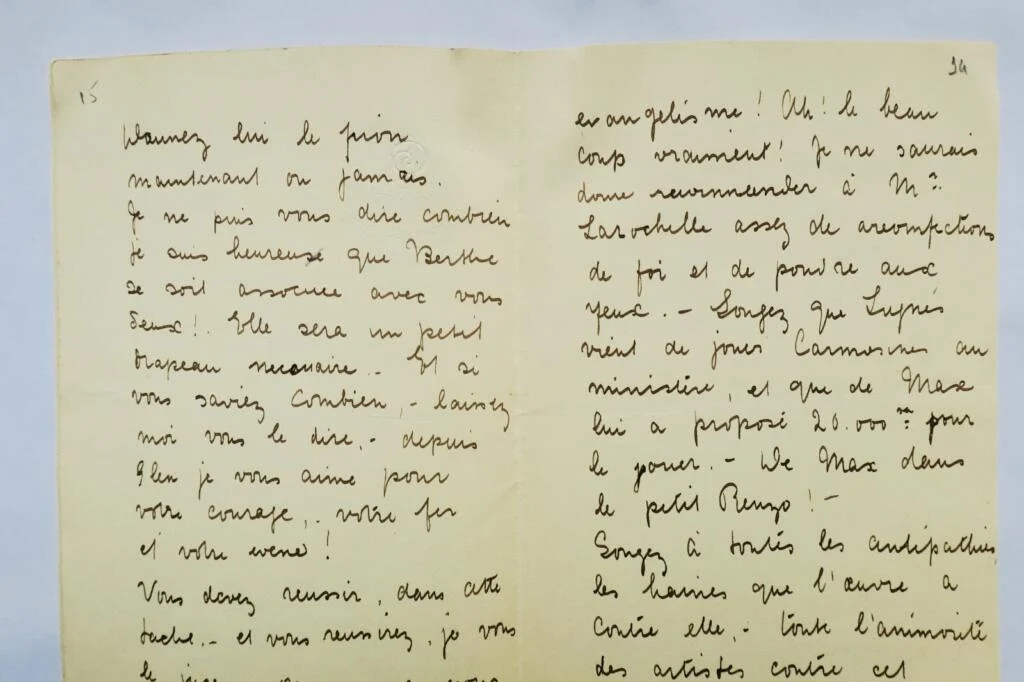 15
Damnez lui le pion
maintenant ou jamais.
Je ne puis vous dire combien
je suis heureuse que Berthe
se soit associée avec vous
deux! Elle sera un petit
drapeau necessaire. - Et si
vous saviez combien, - laissez
moi vous le dire, - depuis
je vous aime pour
votre courage, votre fer
et votre !
Vous devez reussir, dans cette
tache. - et vous reussirez, je vous
le
14
evangelisme! Ah! le beau
coup vraiment! Je ne saurais
donc recommander à Mr.
Larochelle assez de
de foi et de poudre aux
yeux. - Songez que Lugnés
vient de jouer Carmosine au
ministère, et que de Max
lui a proposé 20.000 pour
le jouer. - De Max dans
le petit Renzo! -
Songez à toutes les antipathies,
les haines que l'œuvre a
contre elle, - toute l'animosité
des artistes contre cet